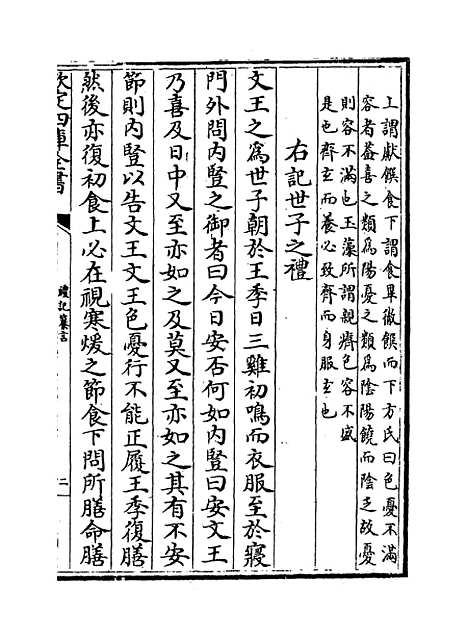 上謂獻饌食下謂食畢徹饌而下方氏曰色憂不滿
容者葢喜之類為陽憂之類為陰陽饒而陰乏故憂
則容不滿也玉藻所謂親癠色容不盛
是也齊𤣥而養必致齊而身服𤣥也
右記世子之禮
文王之為世子朝於王季日三雞初鳴而衣服至於寢
門外問內豎之御者曰今日安否何如內豎曰安文王
乃喜及日中又至亦如之及莫又至亦如之其有不安
節則內豎以告文王文王色憂行不能正履王季復膳
然後亦復初食上必在視寒煖之節食下問所膳命膳
欽定四庫全書
禮記纂言
二